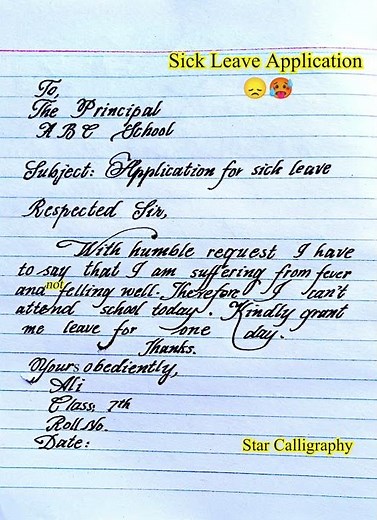 Sick Leave Application
😞🥵
To,
The Principal
A B C School
Subject: Application for sick leave
Respected Sir,
With humble request I have
to say that I am suffering from fever
and not felling well. Therefore I can't
attend school today. Kindly grant
me leave for one day.
Thanks.
Yours obediently,
Ali
Class: 7th
Roll No.
Date:
Star Calligraphy